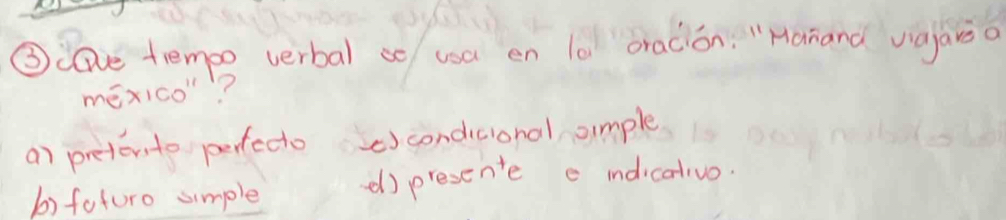 ③ ¿Que tiempo verbal se usa en la oración. "Mañana viajaré a
méxico"?
a) pretérito perfecto c) condicional simple
b) futuro simple d) presente e indicativo.